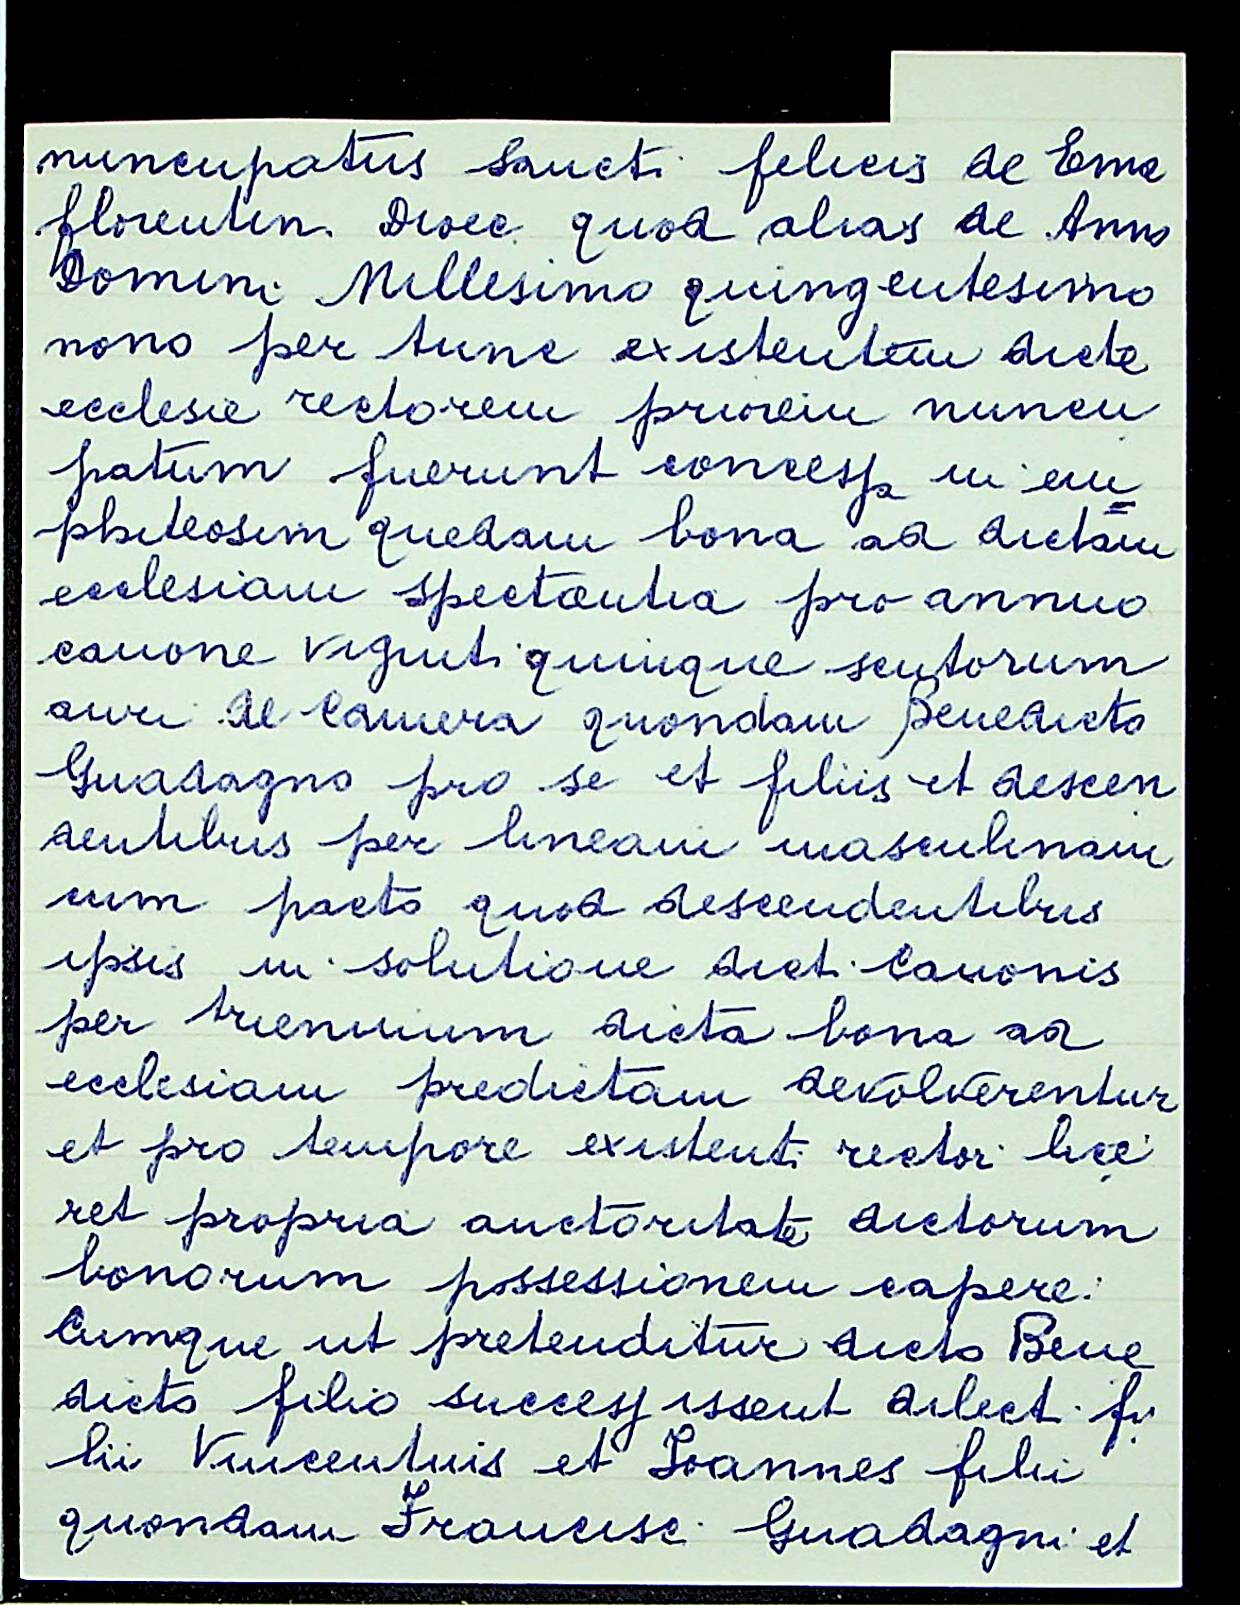 nuncupatus Sancti felicis de Ema
florentin. Dioec. quod alias de Anno
Domini Millesimo quingentesimo
nono per tunc existentem dicte
ecclesie rectorem priorem nuncu
patum fuerunt concessa in em
phiteosim quedam bona ad dictam
ecclesiam spectantia pro annuo
canone viginti quinque scutorum
auri de Camera quondam Benedicto
Guadagno pro se et filiis et descen
dentibus per lineam masculinam
cum pacto quod descendentibus
ipsis in solutione dicti Canonis
per triennium dicta bona ad
ecclesiam predictam devolverentur
et pro tempore existenti rectori lice
ret propria auctoritate dictorum
bonorum possessionem capere.
Cumque ut pretenditur dicto Bene
dicto filio successissent dilect. fi
lii Vincentius et Joannes filii
quondam Francisc. Guadagni et